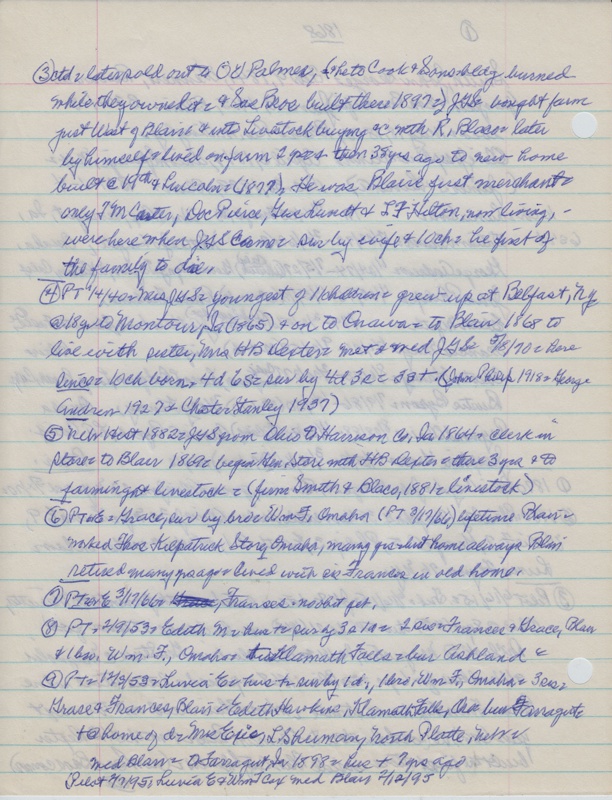 ③ctd = later sold out to O V Palmer, (& heto Cook & Sons bldg burned
while they owned it = & Sas Bros built there 1897 =) JGS = bought farm
just West of Blair = & into Livestock buying &c with R. Blaco = later
by himself = lived on farm 2 yrs & then 38 yrs ago to new home
built @ 19th & Lincoln = (1877). He was Blair first merchant =
only T M Carter, Doc Peirce, Geo Lundt & L F Hilton, now living, -
were here when JGS came = sur by wife & 10ch = he first of
the family to die.
④ PT 1/4/40 = Mrs JGS = youngest of 11 children = grew up at Belfast, NY
@ 18 yr to Montour, Ia (1865) & on to Onawa = to Blair 1868 to
live with sister, Mrs H B Dexter = met & med JGS = 5/ /70 = here
since = 10ch born, 4d 6s = sur by 4d 3s = 3s + (John Philip 1918 = George
Andrew 1927 & Chester Stanley 1937)
⑤ Nebr Hist 1882 = JGS from Ohio to Harrison Co, Ia 1864 = clerk in
store = to Blair 1869 = begin Gen. Store with H B Dexter = there 3 yrs & to
farming & livestock = (firm Smith & Blaco, 1881 = livestock)
⑥ PT & E = Grace, sur by bro = Wm F, Omaha (PT 3/17/66) lifetime Blair =
worked Thos Kilpatrick Store, Omaha, many yrs = but home always Blair
retired many yrs ago & lived with sis Frances in old home.
⑦ PT & E 3/17/66 = Frances = no obit yet.
⑧ PT = 2/9/53 = Edith M = hus + = sur by 3s 1d = 2 sis = Frances & Grace, Blair
& 1 bro, Wm. F., Omaha = Klamath Falls = bur Ashland =
⑨ PT = 1953 = Luvia E = hus + = sur by 1d, 1 bro, Wm F, Omaha = 3 sis =
Grace & Frances, Blair = Edith Hawkins, Klamath Falls, Ore = bur Farragut
+ @ home of d = Mrs Epic, L Shuman, North Platte, Nebr =
med Blair = to Farragut, Ia 1898 = hus + 7 yrs ago
Pilot 1951, Luvia E & Wm Cox med Blair 2/12/95